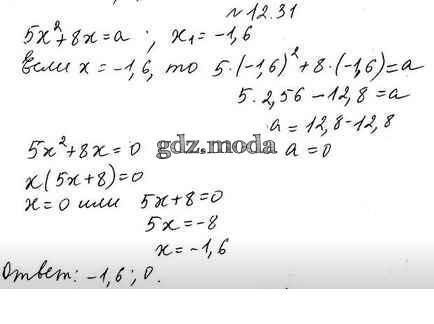 №12.31
5x²+8x=a ; x₁=-1,6
Если x=-1,6, то 5·(-1,6)²+8·(-1,6)=a
5·2,56-12,8=a
a=12,8-12,8
5x²+8x=0 gdz.moda a=0
x(5x+8)=0
x=0 или 5x+8=0
5x=-8
x=-1,6
Ответ: -1,6; 0.